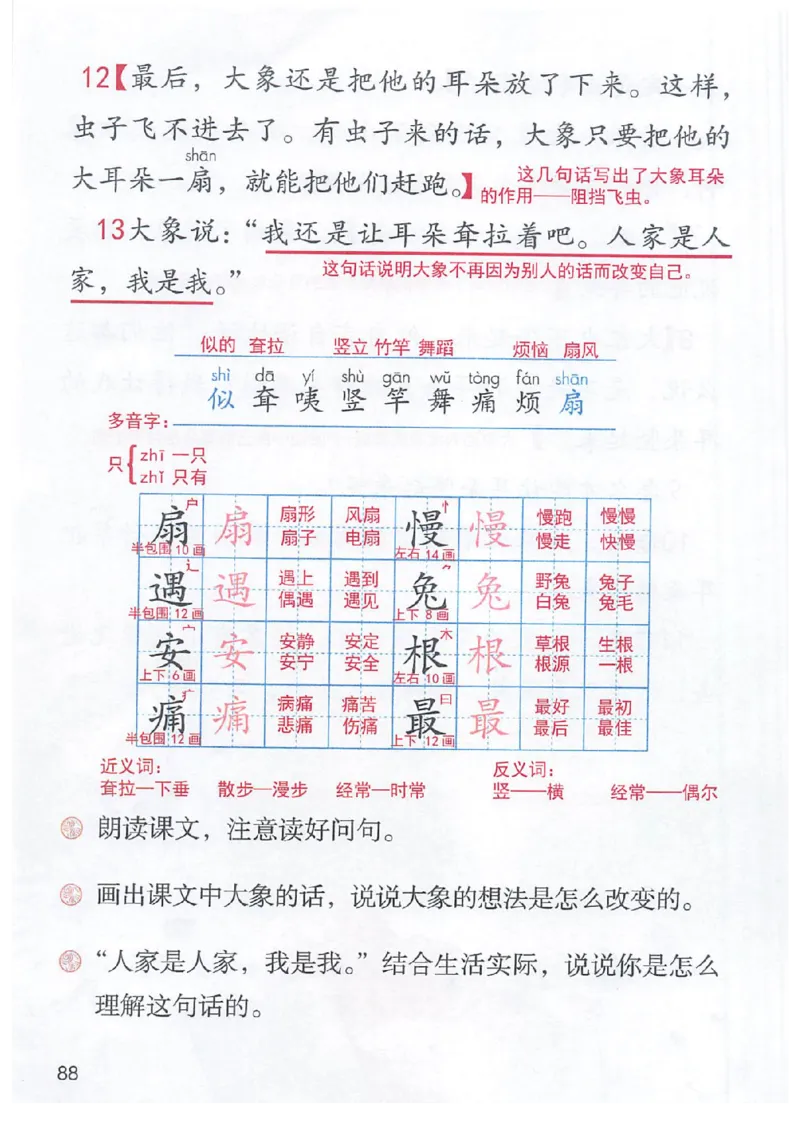 12【最后，大象还是把他的耳朵放了下来。这样，
虫子飞不进去了。有虫子来的话，大象只要把他的
shān
大耳朵一扇，就能把他们赶跑。】
这几句话写出了大象耳朵
的作用——阻挡飞虫。
13大象说：“我还是让耳朵耷拉着吧。人家是人
家，我是我。”
这句话说明大象不再因为别人的话而改变自己。
似的 耷拉 竖立 竹竿 舞蹈 烦恼 扇风
shì dā yí shù gān wǔ tòng fán shān
似 耷 咦 竖 竿 舞 痛 烦 扇
多音字：
只{
zhī 一只
zhǐ 只有
扇 户 半包围 10画 扇 扇形 风扇
扇子 电扇
慢 忄 左右 14画 慢 慢跑 慢慢
慢走 快慢
遇 辶 半包围 12画 遇 遇上 遇到
偶遇 遇见
兔 ⺈ 上下 8画 兔 野兔 兔子
白兔 兔毛
安 宀 上下 6画 安 安静 安定
安宁 安全
根 木 左右 10画 根 草根 生根
根源 一根
痛 疒 半包围 12画 痛 病痛 痛苦
悲痛 伤痛
最 曰 上下 12画 最 最好 最初
最后 最佳
近义词：
耷拉—下垂 散步—漫步 经常—时常
反义词：
竖——横 经常——偶尔
朗读课文，注意读好问句。
画出课文中大象的话，说说大象的想法是怎么改变的。
“人家是人家，我是我。”结合生活实际，说说你是怎么
理解这句话的。
88